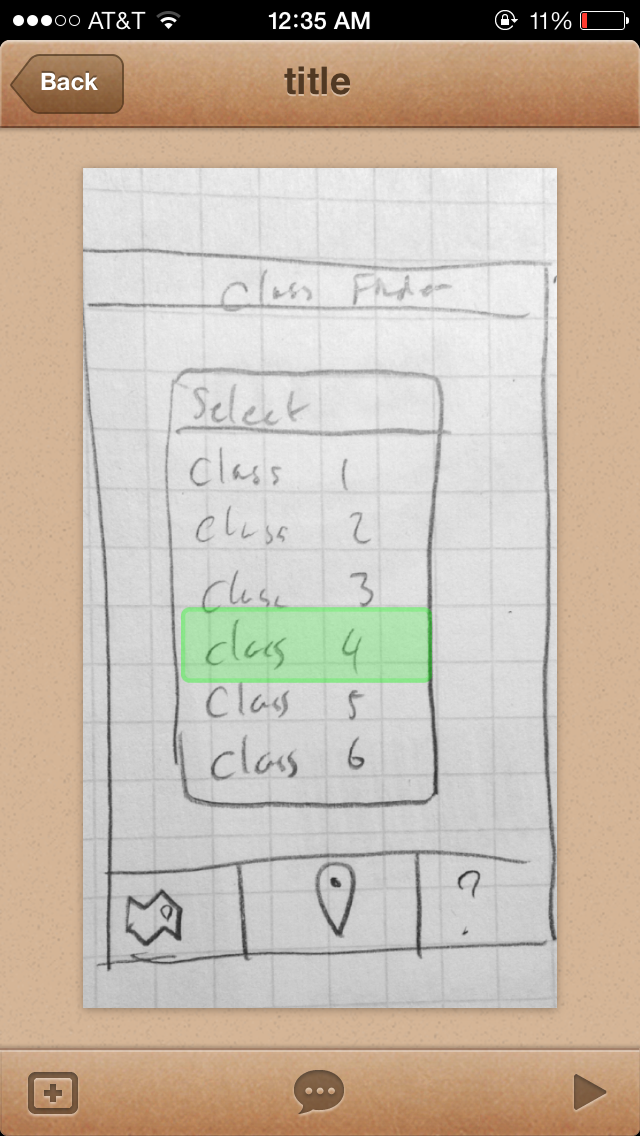 AT&T 12:35 AM 11%
Back title
Class Finder
Select
Class 1
Class 2
Class 3
Class 4
Class 5
Class 6
?